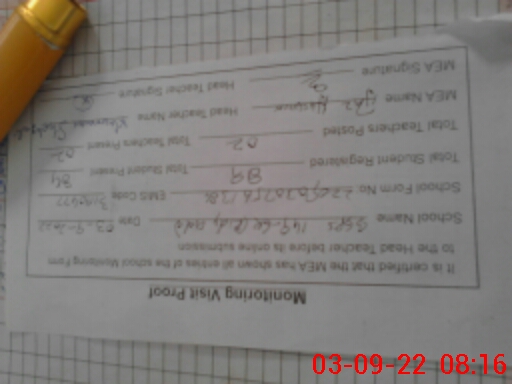 Monitoring Visit Proof
It is certified that the MEA has shown all entries of the school Monitoring Form
to the Head Teacher before its online submission
School Name GGPS 149-6R Date 03-9-2022
School Form No EMIS Code
Total Student Registered 89 Total Student Present 84
Total Teachers Posted 02 Total Teachers Present 02
MEA Name Head Teacher Name
MEA Signature Head Teacher Signature
03-09-22 08:16